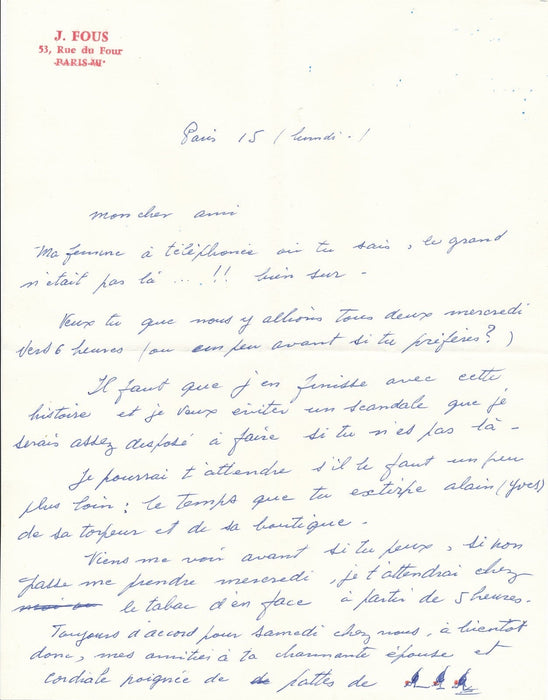 J. FOUS
53, Rue du Four
PARIS-VIᵉ
Paris 15 (lundi-)
mon cher ami
Ma femme à téléphonée où tu sais, le grand
n'était pas là ...!! bien sur -
Veux tu que nous y allions tous deux mercredi
vers 6 heures (ou un peu avant si tu préfères?)
Il faut que j'en finisse avec cette
histoire et je veux éviter un scandale que je
serais assez disposé à faire si tu n'es pas là -
Je pourrai t'attendre s'il le faut un peu
plus loin: le temps que tu extirpe alain (Yves)
de sa torpeur et de sa boutique.
Viens me voir avant si tu peux, si non
passe me prendre mercredi, je t'attendrai chez
le tabac d'en face à partir de 5 heures.
Toujours d'accord pour samedi chez nous, à bientot
donc, mes amitiés à ta charmante épouse et
cordiale poignée de pattes de